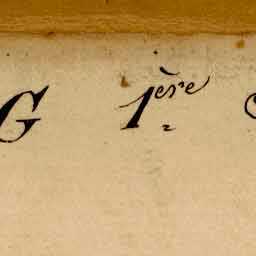 G 1ère